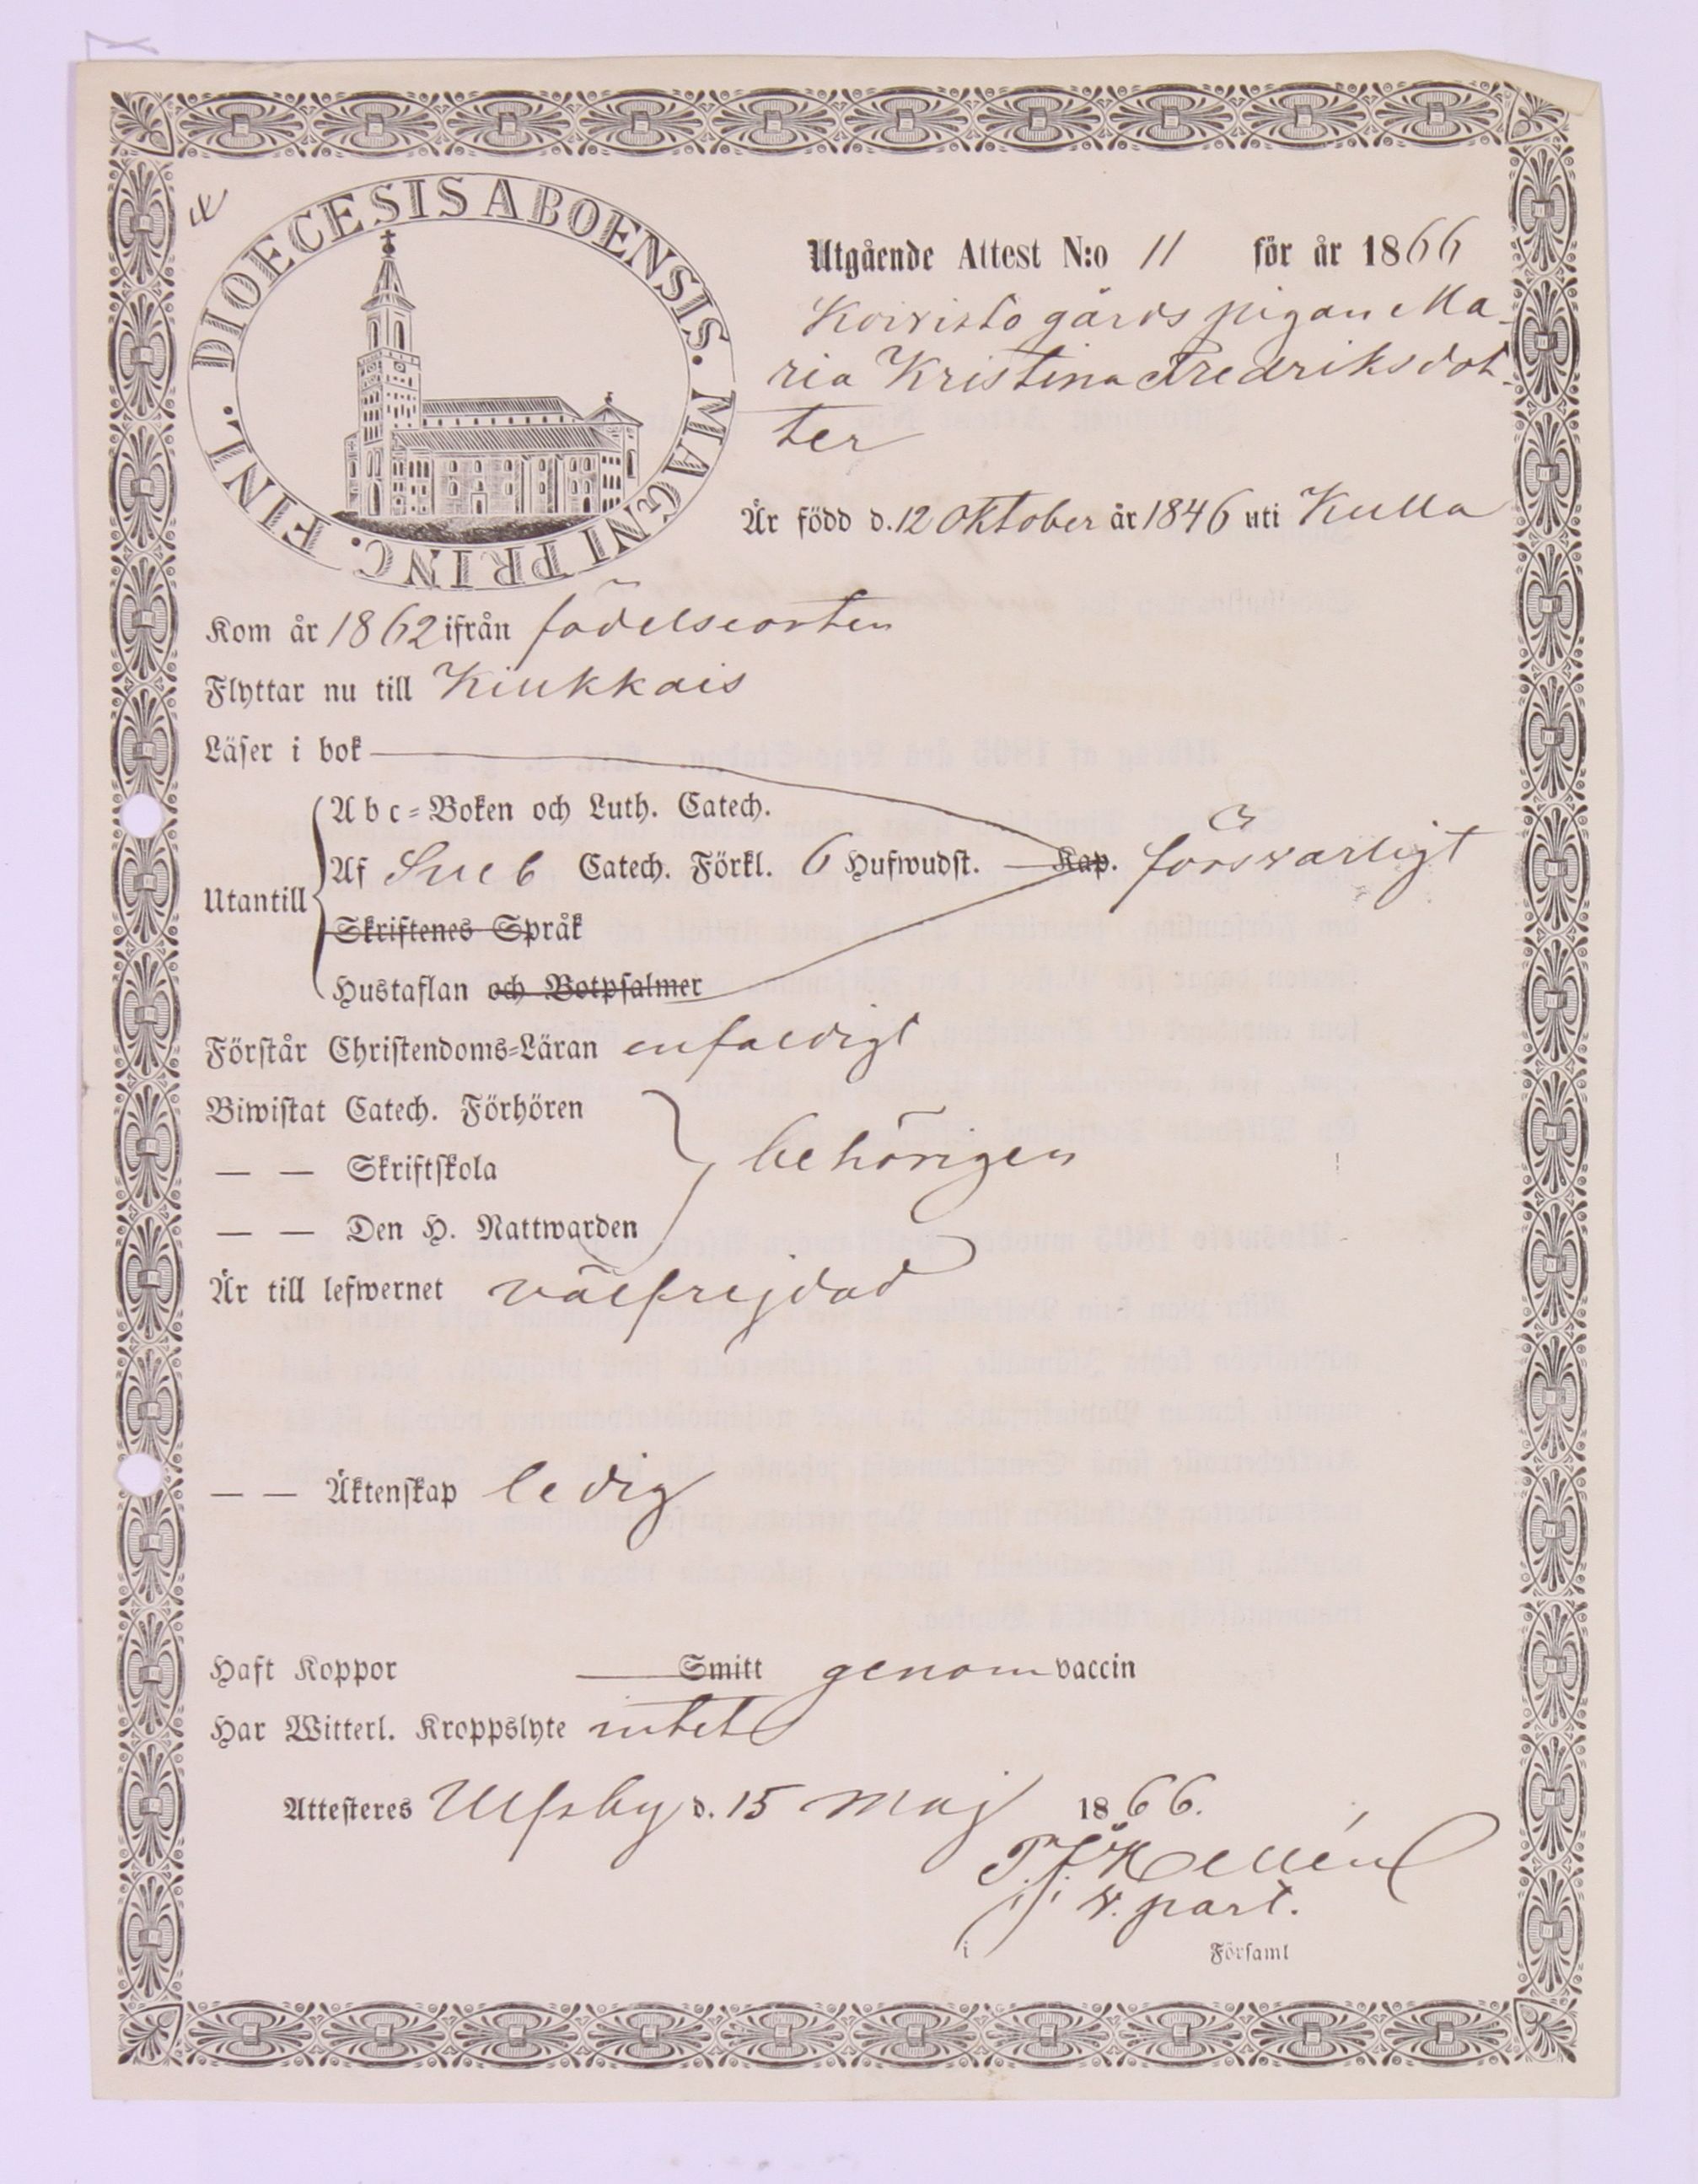 DIOECESIS ABOENSIS. MAGNI PRINC. FINL.
Utgående Attest N:o 11 för år 1866
Koivisto gårds pigan Ma-
ria Kristina Fredriksdot-
ter
Är född d. 12 Oktober år 1846 uti Kulla
Kom år 1862 ifrån födelseorten
Flyttar nu till Kiukkais
Läser i bok
Abc-Boken och Luth. Catech.
Utantill Af Sveb Catech. Förkl. 6 Hufwudst. Kap. försvarligt
Skriftenes Språk
Hustaflan och Botpsalmer
Förstår Christendoms-Läran enfaldigt
Biwistat Catech. Förhören
— — Skriftskola behörigen
— — Den H. Nattwarden
Är till lefwernet välfrejdad
— — Äktenskap ledig
Haft Koppor Smitt genom vaccin
Har Witterl. Kroppslyte intet
Attesteres Ulfsby d. 15 Maj 1866.
Hellén
v. past.
i Församl